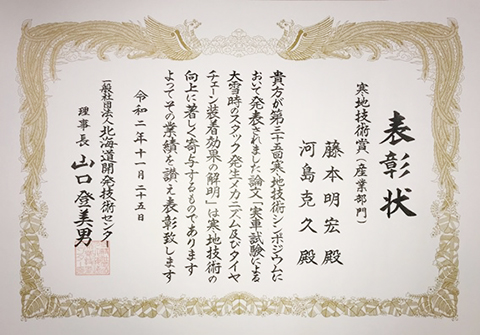 表彰状
寒地技術賞(産業部門)
藤本明宏 殿
河島克久 殿
貴方が第三十五回寒地技術シンポジウムに
おいて発表されました論文「実車試験による
大雪時のスタック発生メカニズム及びタイヤ
チェーン装着効果の解明」は寒地技術の
向上に著しく寄与するものであります
よってその業績を讃え表彰致します
令和二年十一月二十五日
一般社団法人北海道開発技術センター
理事長 山口登美男